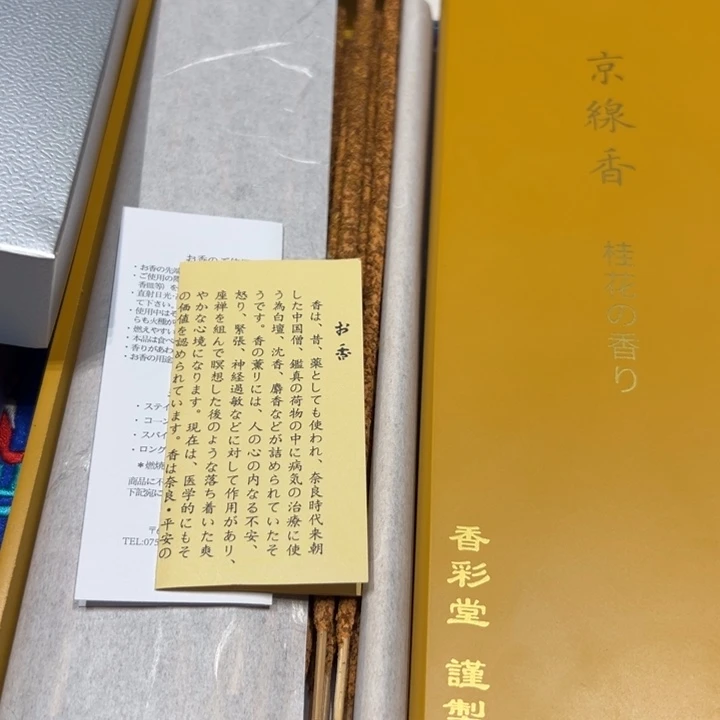 京線香
桂花の香り
香彩堂 謹製
お香
香は、昔、薬としても使われ、奈良時代来朝
した中国僧、鑑真の荷物の中に病気の治療に使
う為白壇、沈香、麝香などが詰められていたそ
うです。香の薫りには、人の心の内なる不安、
怒り、緊張、神経過敏などに対して作用があり、
座禅を組んで瞑想した後のような落ち着いた爽
やかな心境になります。現在は、医学的にもそ
の価値を認められています。香は奈良・平安の
・お香の先端
・ご使用の際
香皿等）を
・直射日光・
て下さい。
・使用中はそ
らも火種が
・燃えやすい
・本品は食べ
・香りがあわ
・お香の用途
・ステイ
・コーン
・スパイ
・ロング
＊燃焼
商品に不
下記宛に
TEL:075